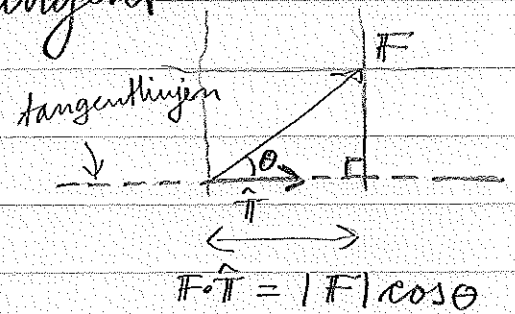 F
tangentlinjen
θ
T̂
F·T̂ = |F| cosθ